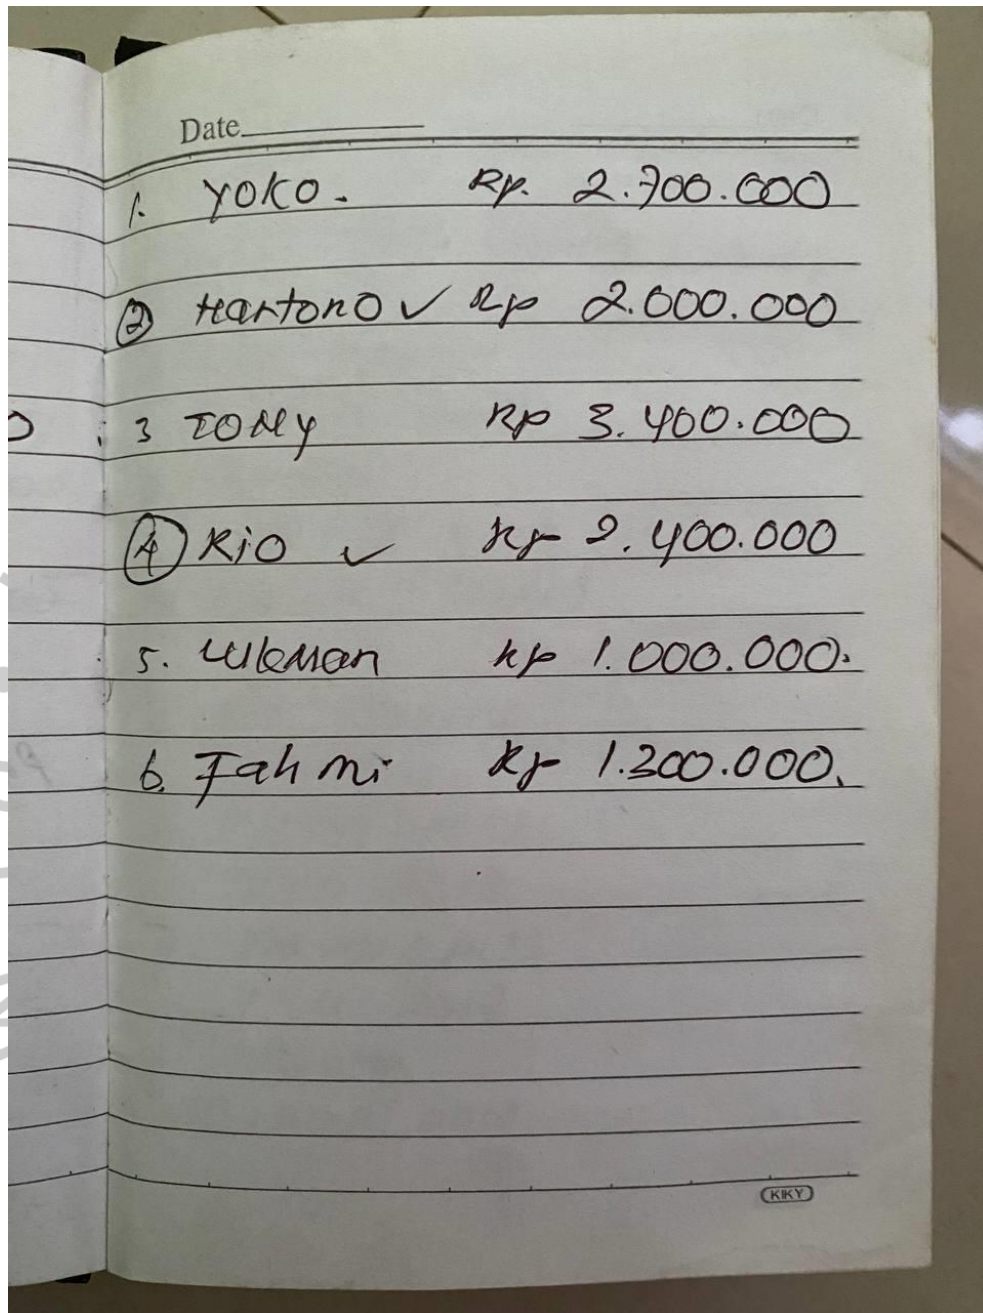 Date
1. YOKO. Rp. 2.700.000
2 Hartono ✓ Rp 2.000.000
3 TONY Rp 3.400.000
4 Rio ✓ Rp 2.400.000
5. Lukman Rp 1.000.000.
6. Fahmi Rp 1.300.000.
KIKY